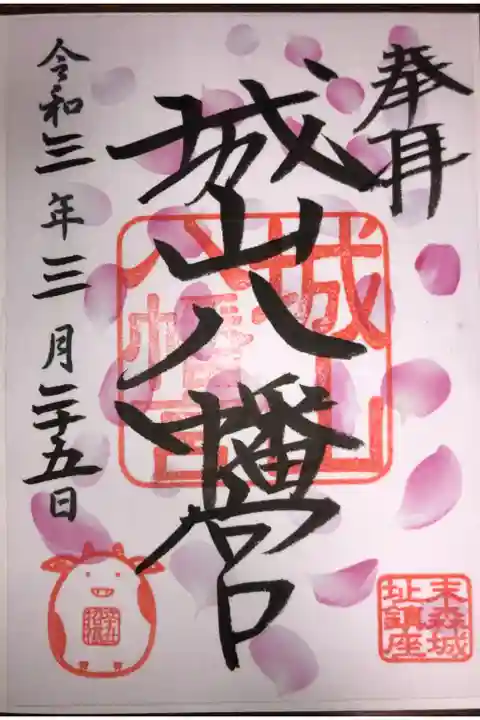 奉拝
城山八幡宮
城山
八幡宮
令和三年三月二十五日
末森城
址鎮座